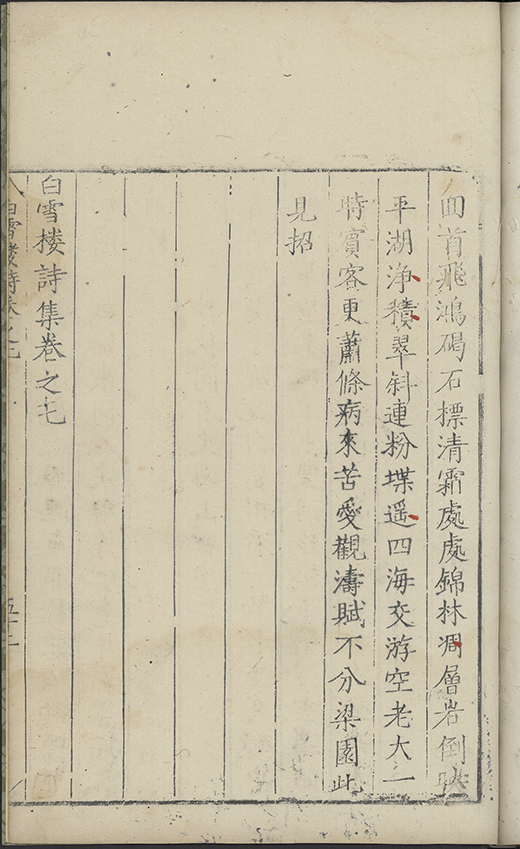 回首飛鴻碣石標清霜處處錦林凋層岩倒映
平湖浄積翠斜連粉堞遥四海交游空老大一
時賓客更蕭條病來苦愛觀濤賦不分梁園此
見招
白雪楼詩集卷之七
白雪楼詩卷之七
五十二